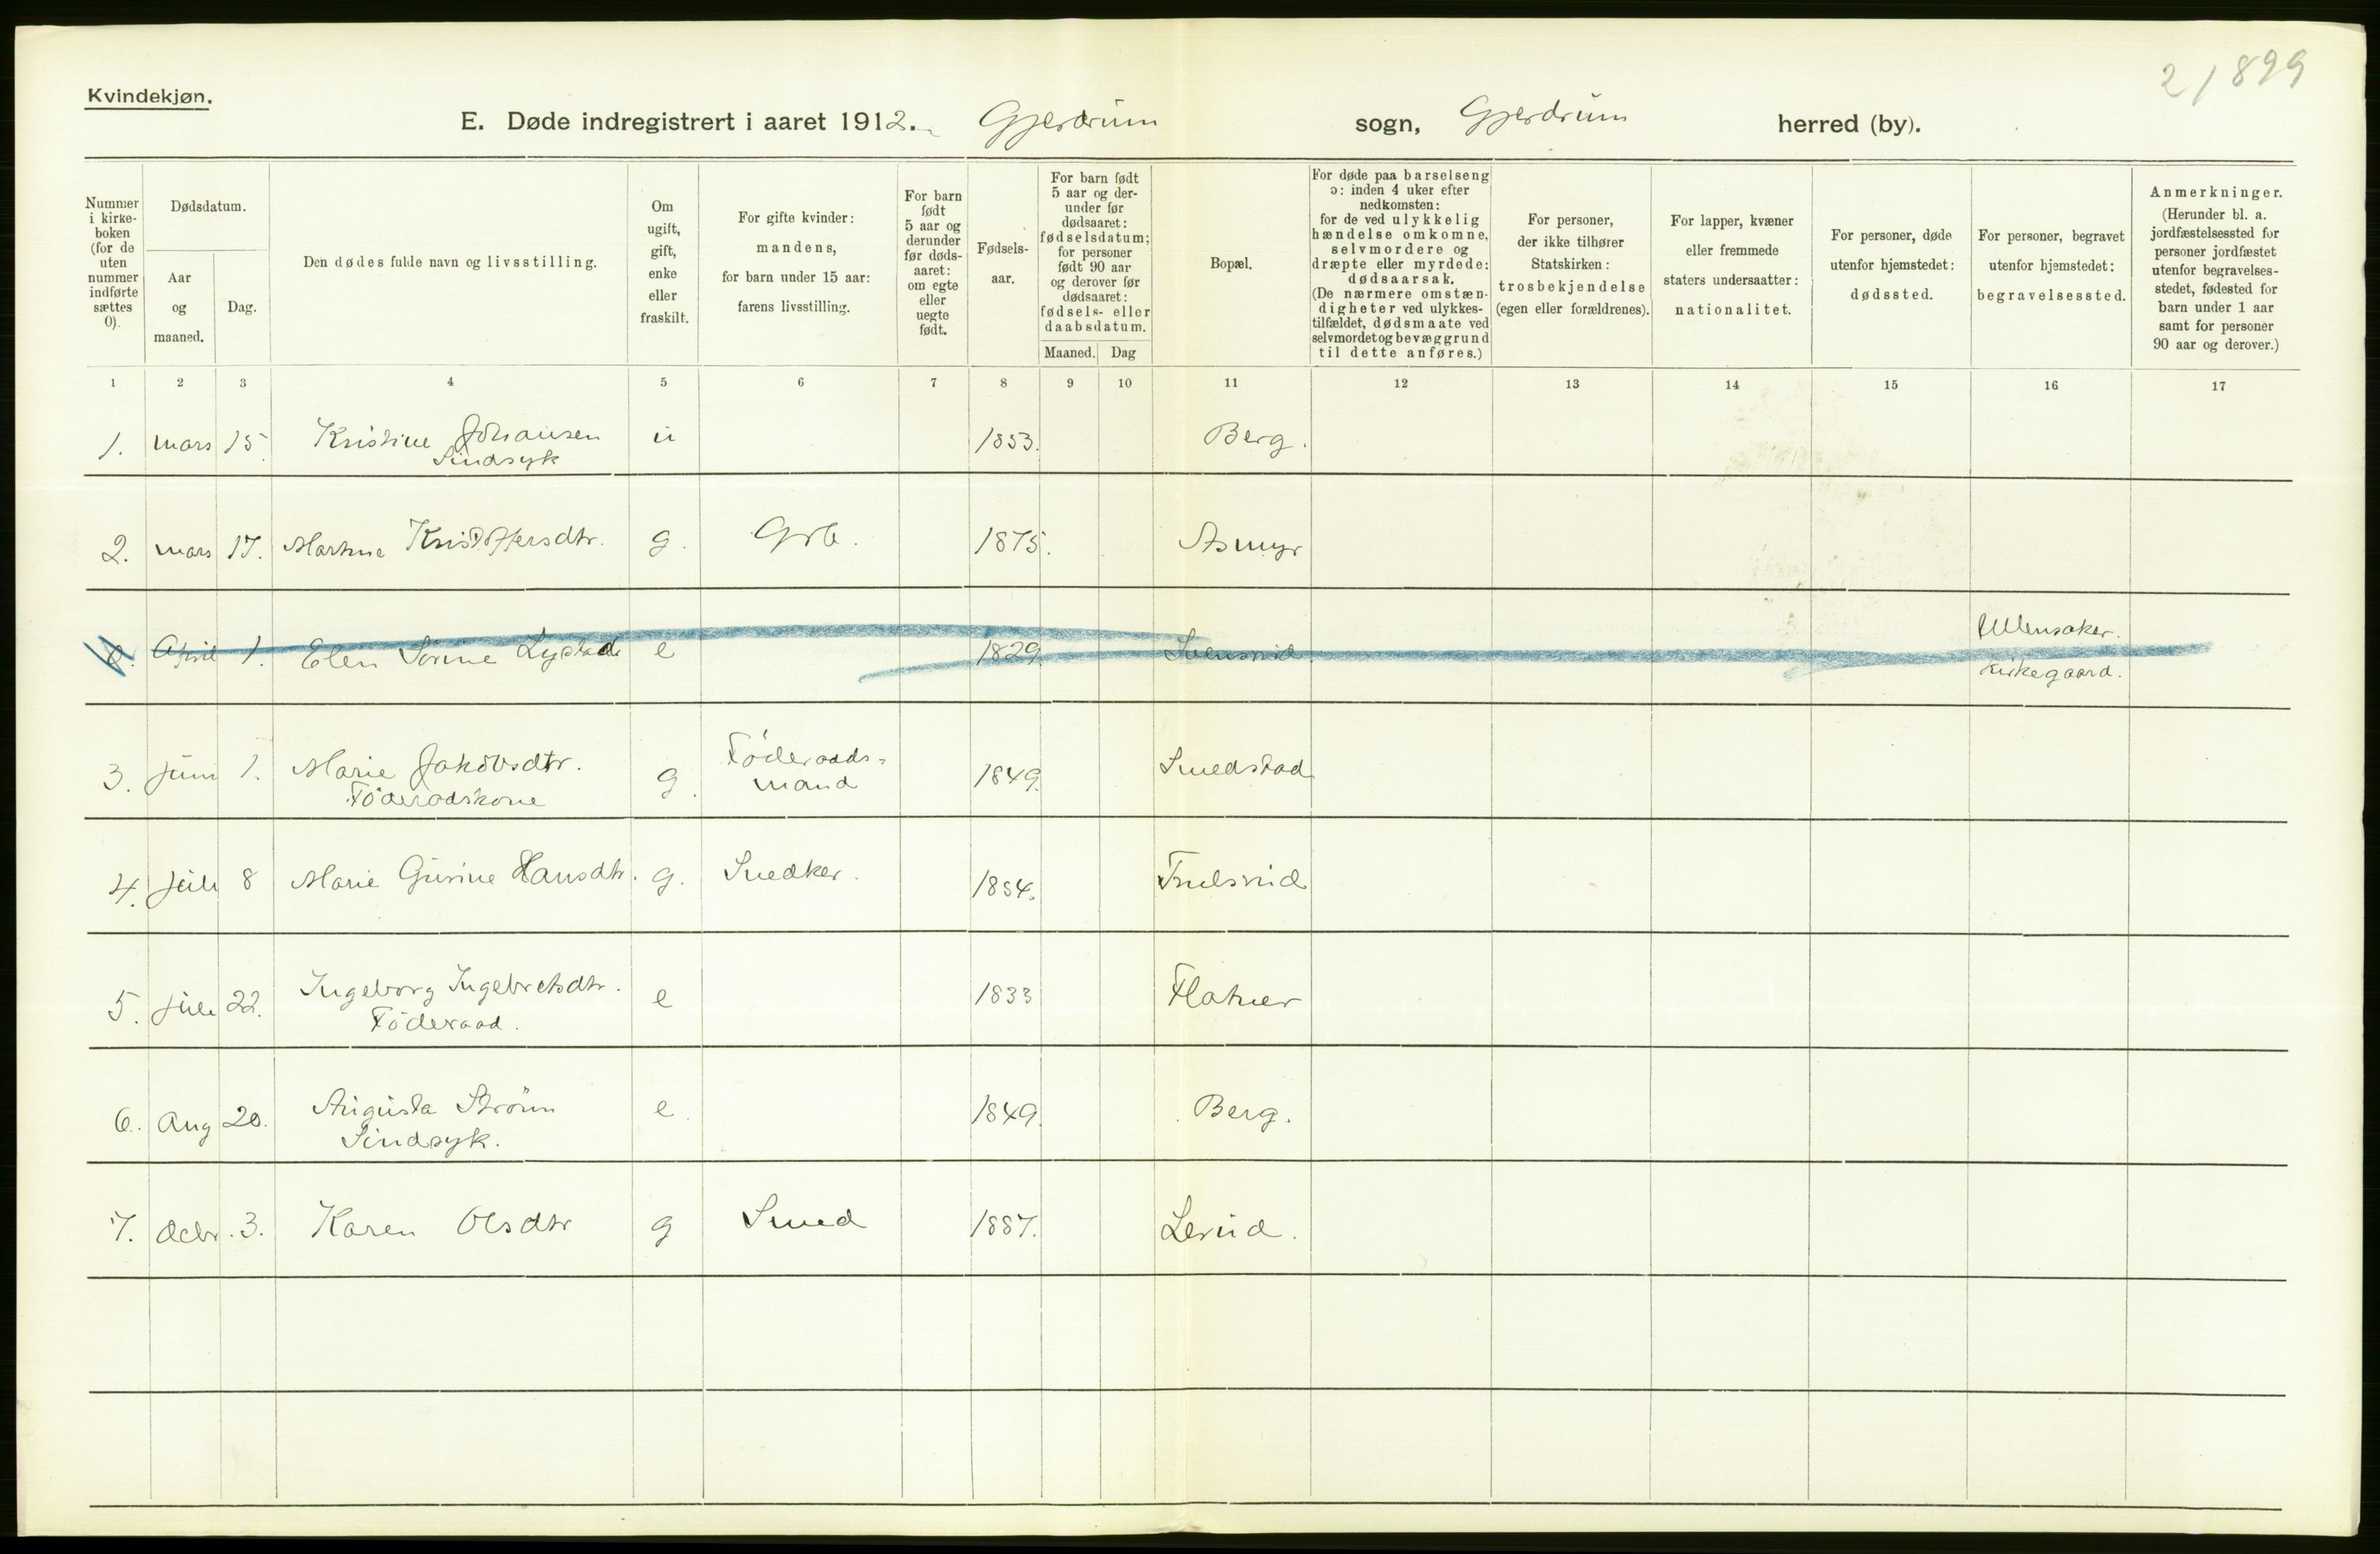 2/899
Kvindekjøn.
E. Døde indregistrert i aaret 1912. Gjerdrum sogn, Gjerdrum herred (by).
Nummer i kirkeboken (for de uten nummer indførte sættes 0).
Dødsdatum.
Aar og maaned.
Dag.
Den dødes fulde navn og livsstilling.
Om ugift, gift, enke eller fraskilt.
For gifte kvinder: mandens, for barn under 15 aar: farens livsstilling.
For barn født 5 aar og derunder før dødsaaret: om egte eller uegte født.
Fødselsaar.
For barn født 5 aar og derunder før dødsaaret: fødselsdatum; for personer født 90 aar og derover før dødsaaret: fødsels- eller daabsdatum.
Maaned. Dag
Bopæl.
For døde paa barselseng ɔ: inden 4 uker efter nedkomsten: for de ved ulykkelig hændelse omkomne, selvmordere og dræpte eller myrdede: dødsaarsak. (De nærmere omstændigheter ved ulykkestilfældet, dødsmaate ved selvmordet og bevæggrund til dette anføres.)
For personer, der ikke tilhører Statskirken: trosbekjendelse (egen eller forældrenes).
For lapper, kvæner eller fremmede staters undersaatter: nationalitet.
For personer, døde utenfor hjemstedet: dødssted.
For personer, begravet utenfor hjemstedet: begravelsessted.
Anmerkninger. (Herunder bl. a. jordfæstelsessted for personer jordfæstet utenfor begravelsesstedet, fødested for barn under 1 aar samt for personer 90 aar og derover.)
1 2 3 4 5 6 7 8 9 10 11 12 13 14 15 16 17
1. mars 15. Kristine Johansen u 1853. Berg.
Sindsyk
2. mars 17. Martine Kristoffersdtr. g. Grb. 1875. Asmyr
0. April 1. Elen Sorine Lystad e 1829. Svensrud. Ullensaker.
Kirkegaard.
3. juni 1. Marie Jakobsdtr. g. Föderaads- 1849. Smedstad
Föderadskone mand
4. juli 8 Marie Gurine Hansdtr. g. Snedker. 1854. Trulsrud
5. juli 22. Ingeborg Ingebretsdtr. e 1833 Flatner
Föderaad.
6. Aug 20. Augusta Ström e. 1849. Berg.
Sindsyk.
7. Decbr. 3. Karen Olsdtr g Smed 1887. Lerud.